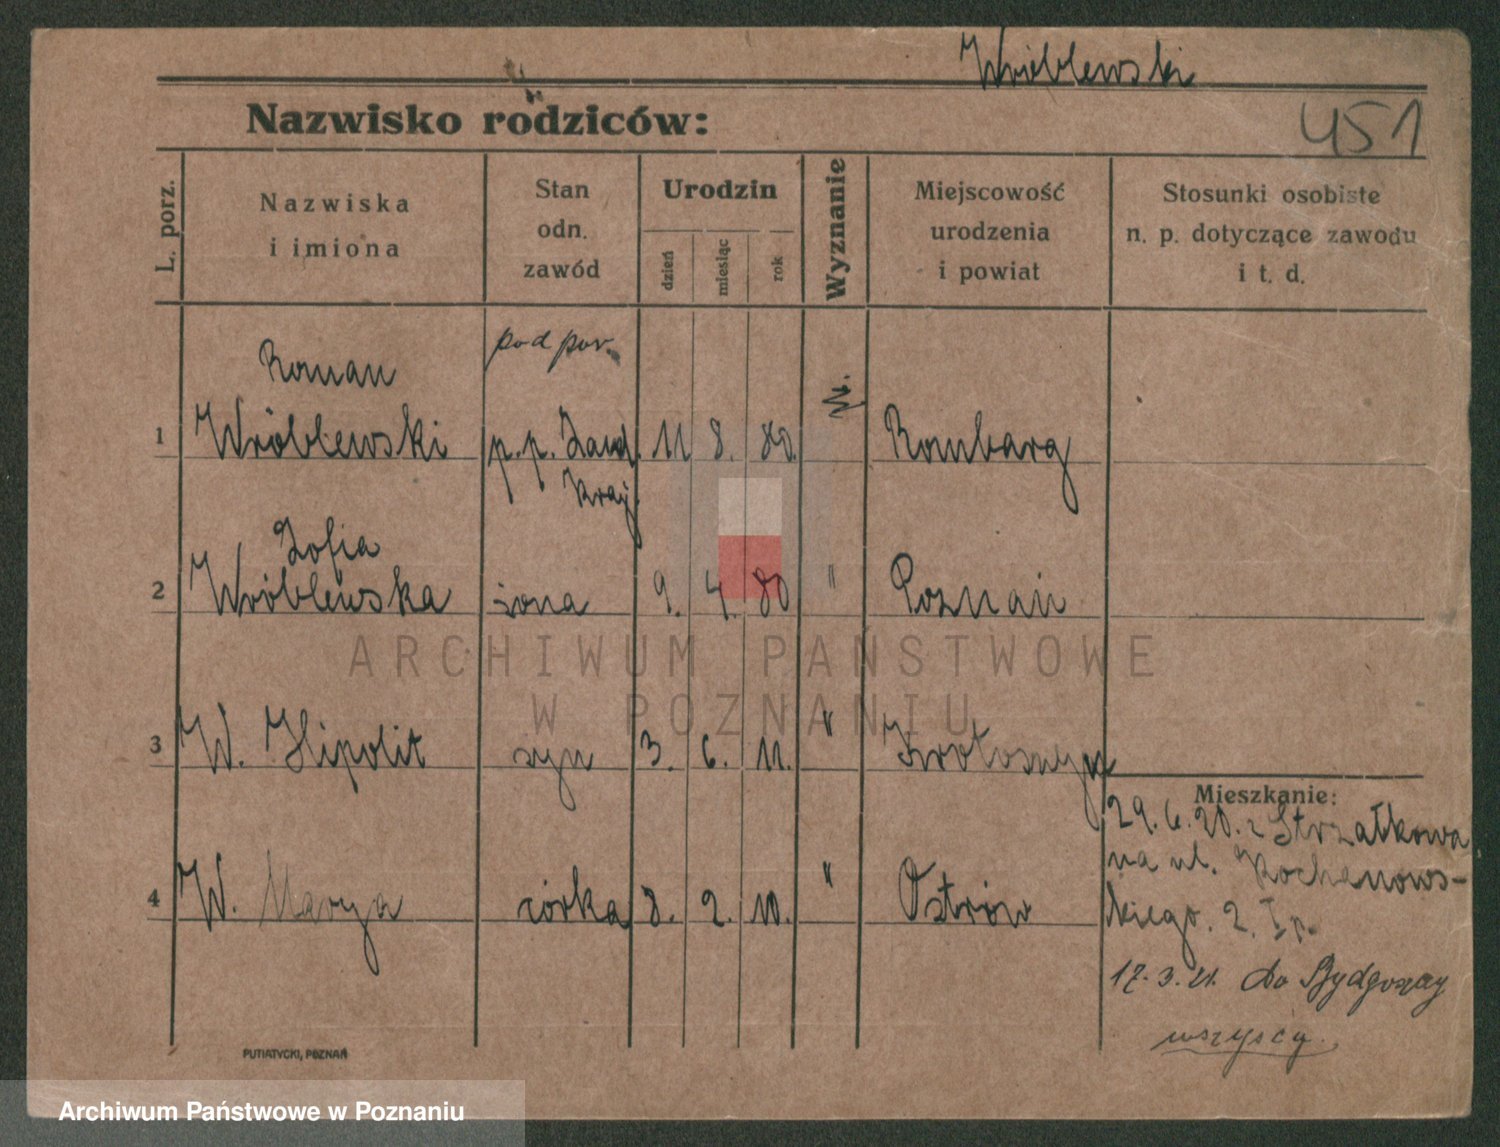 Wróblewski
Nazwisko rodziców:
451
L. porz.
Nazwiska
i imiona
Stan
odn.
zawód
Urodzin
dzień
miesiąc
rok
Wyznanie
Miejscowość
urodzenia
i powiat
Stosunki osobiste
n. p. dotyczące zawodu
i t. d.
Roman
podpor.
1 Wróblewski p.p. Żand. 11 8. 80. Rombarg
Kraj.
Zofia
2 Wróblewska żona 9. 4. 80 " Poznań
3 W. Hipolit syn 3. 6. 11. " Krotoszyn
4 W. Marya córka 8. 2. 10. " Ostrów
Mieszkanie:
29. 6. 20. z Strzałkowa
na ul. Kochanows-
kiego. 2. I p.
17. 3. 21. do Bydgoszczy
wszyscy.
PUTIATYCKI, POZNAŃ
ARCHIWUM PAŃSTWOWE
W POZNANIU
Archiwum Państwowe w Poznaniu